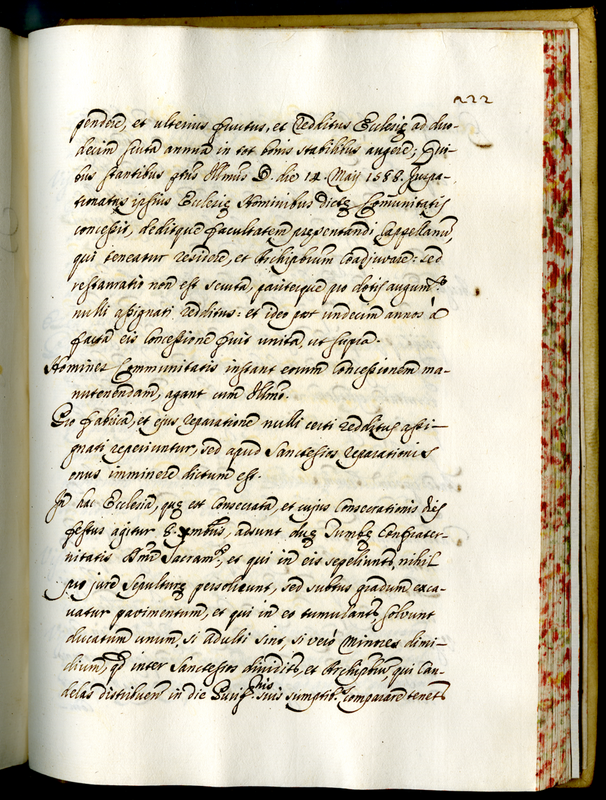 222
pendere, et ulterius fructus, et redditus Ecclesię ad duo-
decim scuta annua in tot bonis stabilibus augere; Qui-
bus stantibus Illmus D. die 14. Maij 1588. Juspa-
tronatus ipsius Ecclesię Hominibus dictę Comunitatis
concessit, deditque facultatem pręsentandi Cappellanū,
qui teneatur residere, et Archipbrum Coadjuvare: sed
restauratio non est secuta, pariterque pro dotis augumto
nulli assignati redditus: et ideo post undecim annos à
facta eis Concessione fuit unita, ut supra.
Homines Communitatis instant eorum Concessionem ma-
nutenendam, agant cum Illmo.
Pro fabrica, et ejus reparatione nulli certi redditus assi-
gnati reperiuntur, sed apud Sanctesios reparationis
onus imminere dictum est.
In hac Ecclesia, quę est Consecrata, et cujus Consecrationis dies
festus agitur adsunt duę Tumbę Confrater-
nitatis Smi Sacramti, et qui in eis sepeliunt, nihil
pro jure Sepulturę persolvunt, sed subtus gradum exca-
vatur pavimentum, et qui in eo tumulant, solvunt
ducatum unum, si Adulti sint, si verò Minores dimi-
dium, qd inter Sanctesios dividit, et Archipbrum, qui Can-
delas distribuen in die Purifnis suis sumptib. comparare tenet